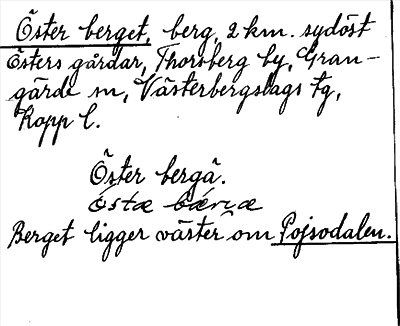 Öster berget, berg, 2 km. sydöst
Östers gårdar, Thorsberg by, Gran-
gärde sn, Västerbergslags fg,
Kopp l.
Öster bergä.
Berget ligger väster om Pojsodalen.